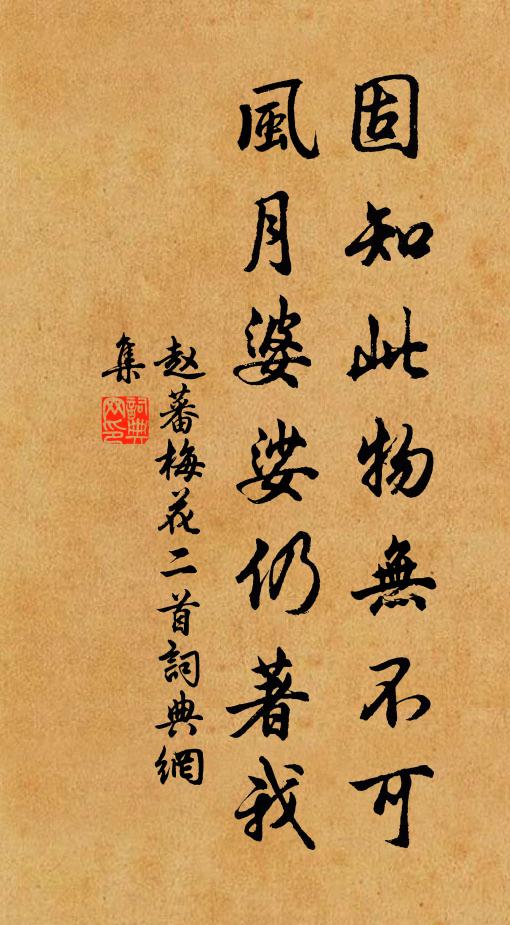 固知此物無不可
風月婆娑仍著我
赵蕃梅花二首詞典網
集
詞典网印